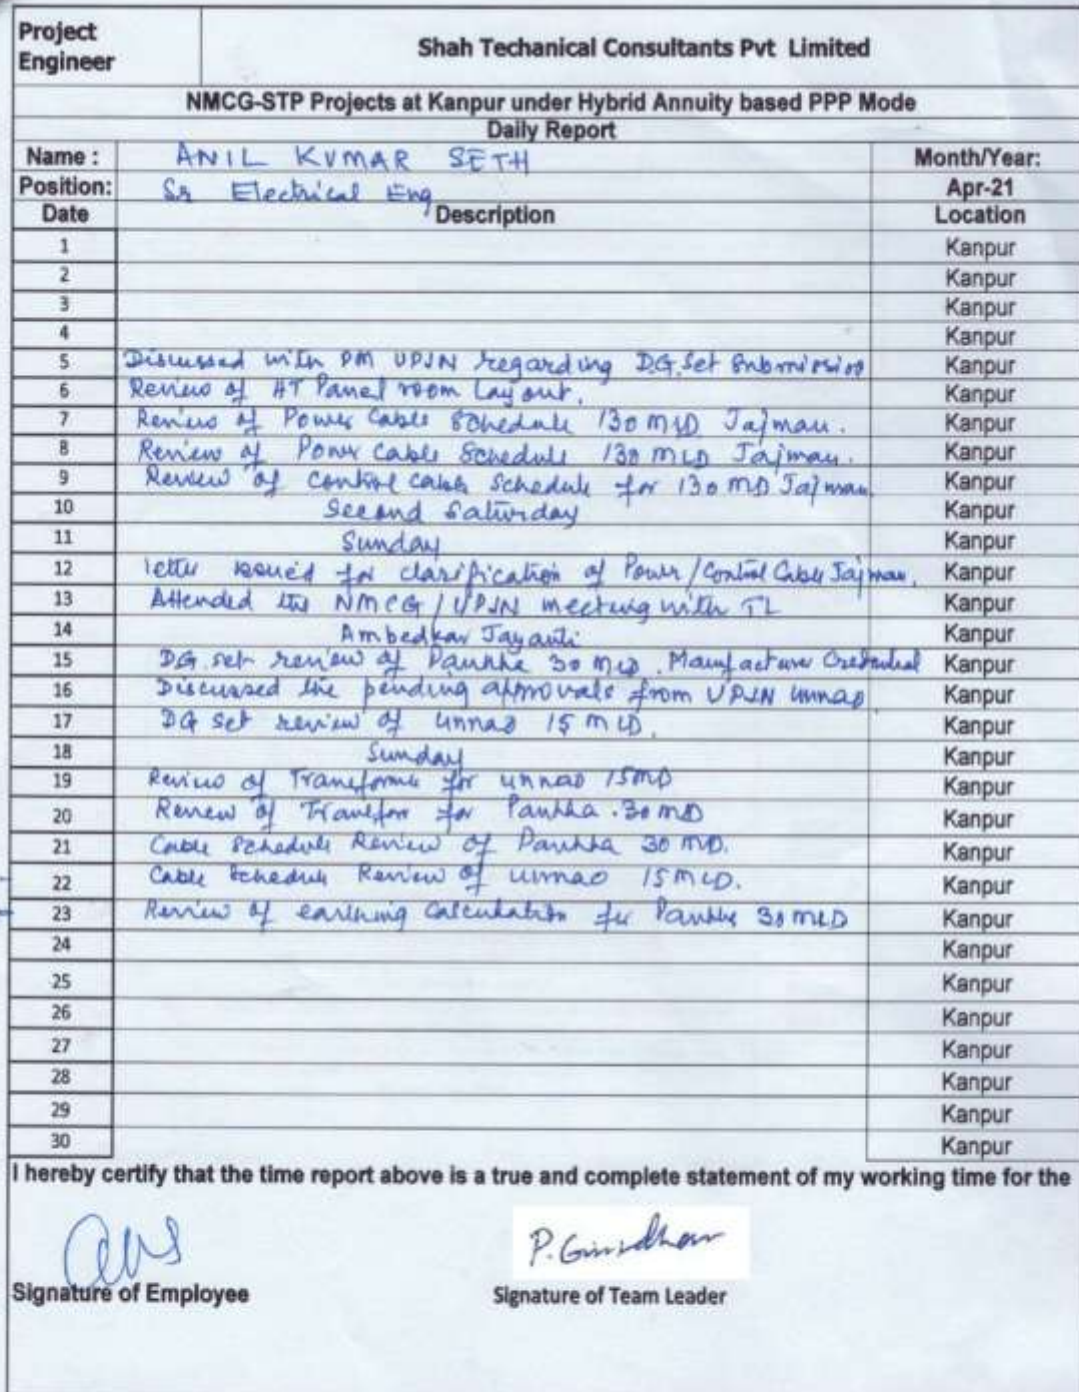 Project Engineer
Shah Techanical Consultants Pvt Limited
NMCG-STP Projects at Kanpur under Hybrid Annuity based PPP Mode
Daily Report
Name : ANIL KUMAR SETH Month/Year:
Position: Sr Electrical Eng Apr-21
Date Description Location
1 Kanpur
2 Kanpur
3 Kanpur
4 Kanpur
5 Discussed with PM UPJN regarding D.G. Set Submission Kanpur
6 Review of HT Panel room Layout. Kanpur
7 Review of Power Cable Schedule 130 MLD Jajmau. Kanpur
8 Review of Power Cable Schedule 130 MLD Jajmau. Kanpur
9 Review of control cable schedule for 130 MLD Jajmau. Kanpur
10 Second Saturday Kanpur
11 Sunday Kanpur
12 letter issued for clarification of Power/Control Cable Jajmau. Kanpur
13 Attended the NMCG/UPJN meeting with TL Kanpur
14 Ambedkar Jayanti Kanpur
15 DG set review of Pankha 30 MLD. Manufacture Credential Kanpur
16 Discussed the pending approvals from UPJN Unnao Kanpur
17 DG set review of Unnao 15 MLD. Kanpur
18 Sunday Kanpur
19 Review of Transforme for unnao 15 MLD Kanpur
20 Review of Transfor for Pankha. 30 MLD Kanpur
21 Cable Schedule Review of Pankha 30 MLD. Kanpur
22 Cable Schedule Review of unnao 15 MLD. Kanpur
23 Review of earthing Calculation for Pankha 30 MLD Kanpur
24 Kanpur
25 Kanpur
26 Kanpur
27 Kanpur
28 Kanpur
29 Kanpur
30 Kanpur
I hereby certify that the time report above is a true and complete statement of my working time for the
P. Giridhar
Signature of Employee Signature of Team Leader